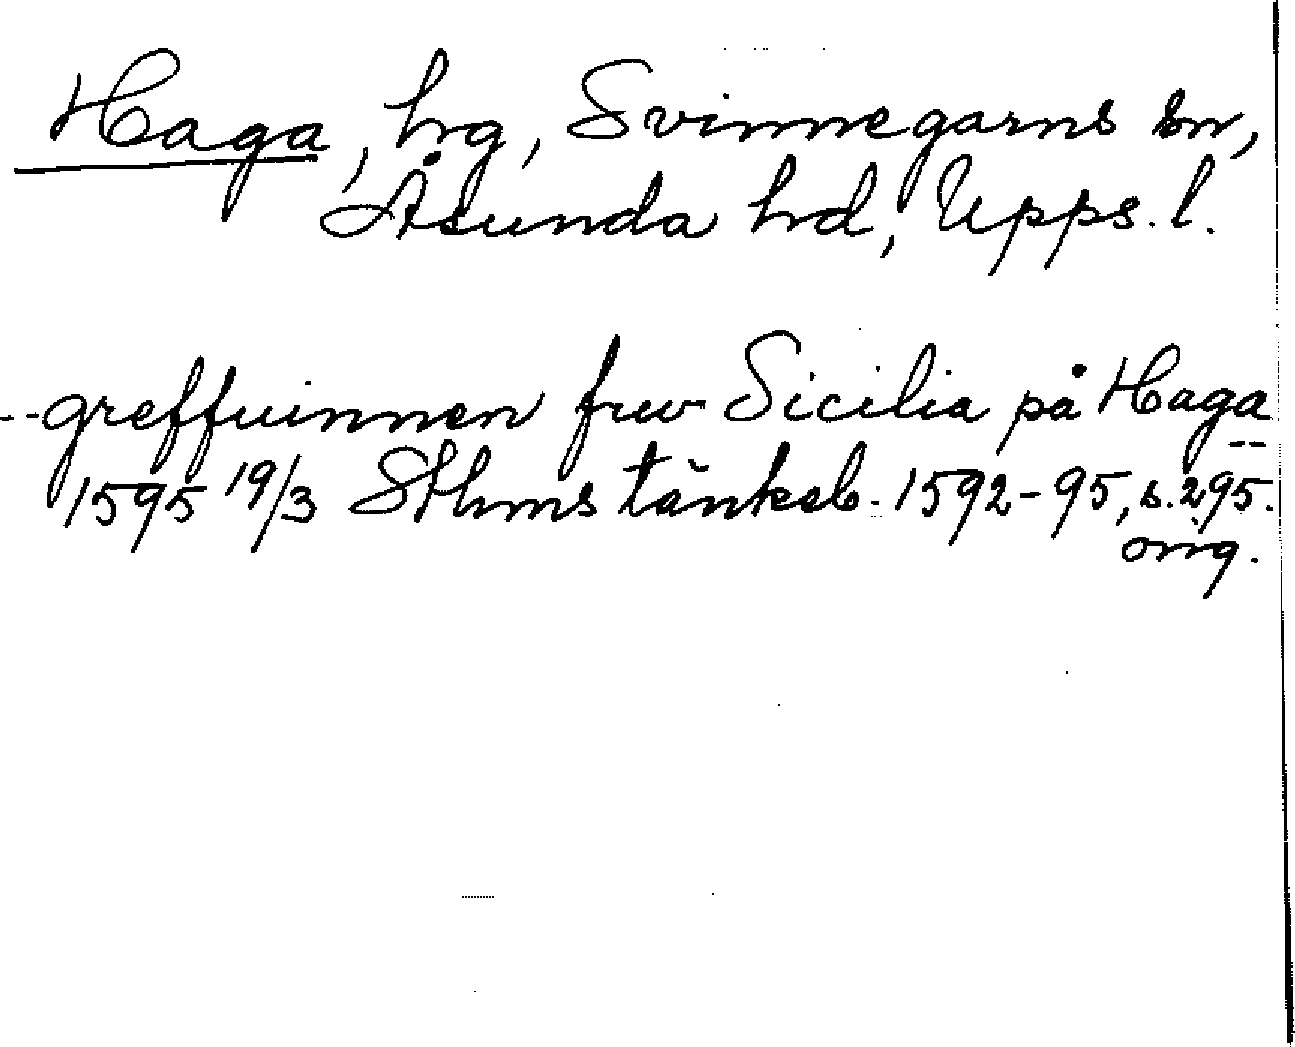 Haga, hrg, Svinnegarns sn,
Åsunda hrd, Upps. l.
--greffuinnen frw Sicilia på Haga
--
1595 19/3 Sthms tänkeb. 1592-95, s. 295.
orig.